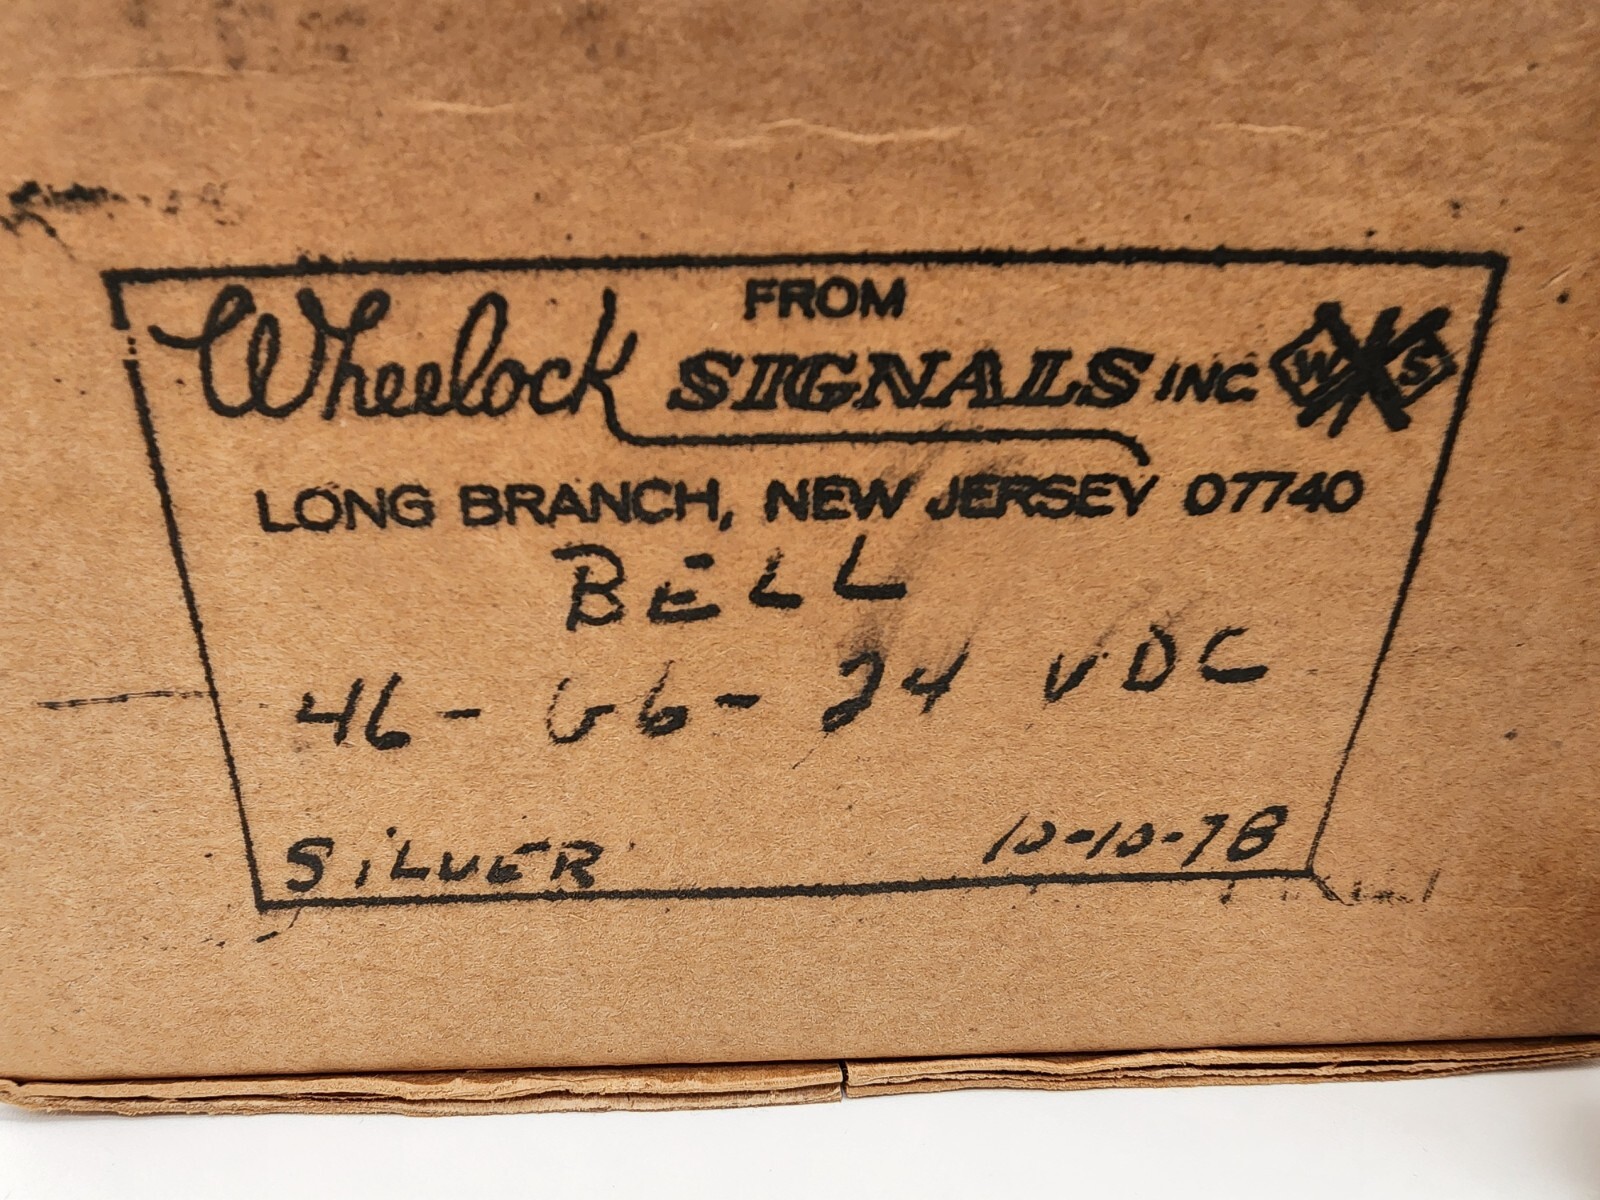 FROM
Wheelock SIGNALS INC WS
LONG BRANCH, NEW JERSEY 07740
BELL
46-G6-24 VDC
SiLVER 10-10-78